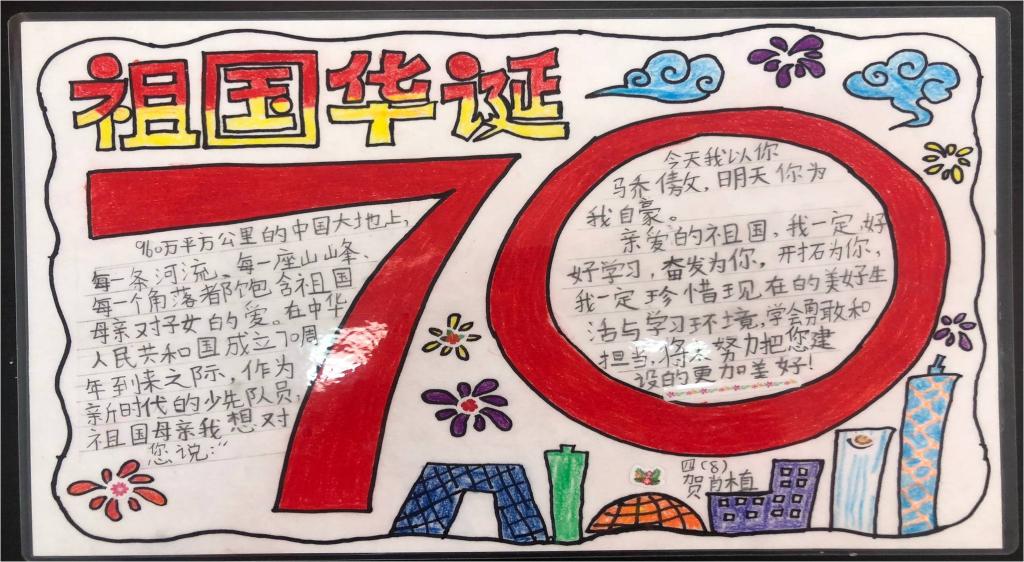 祖国华诞
70
960万平方公里的中国大地上,
每一条河流、每一座山峰、
每一个角落都饱含祖国
母亲对子女的爱。在中华
人民共和国成立70周
年到来之际,作为
新时代的少先队员,
祖国母亲我想对
您说:“
今天我以你
为,明天你为
我自豪。
亲爱的祖国,我一定好
好学习,奋发为你,开拓为你,
我一定珍惜现在的美好生
活与学习环境,学会勇敢和
担当,将来努力把您建
设的更加美好!
四(8)
贺 植